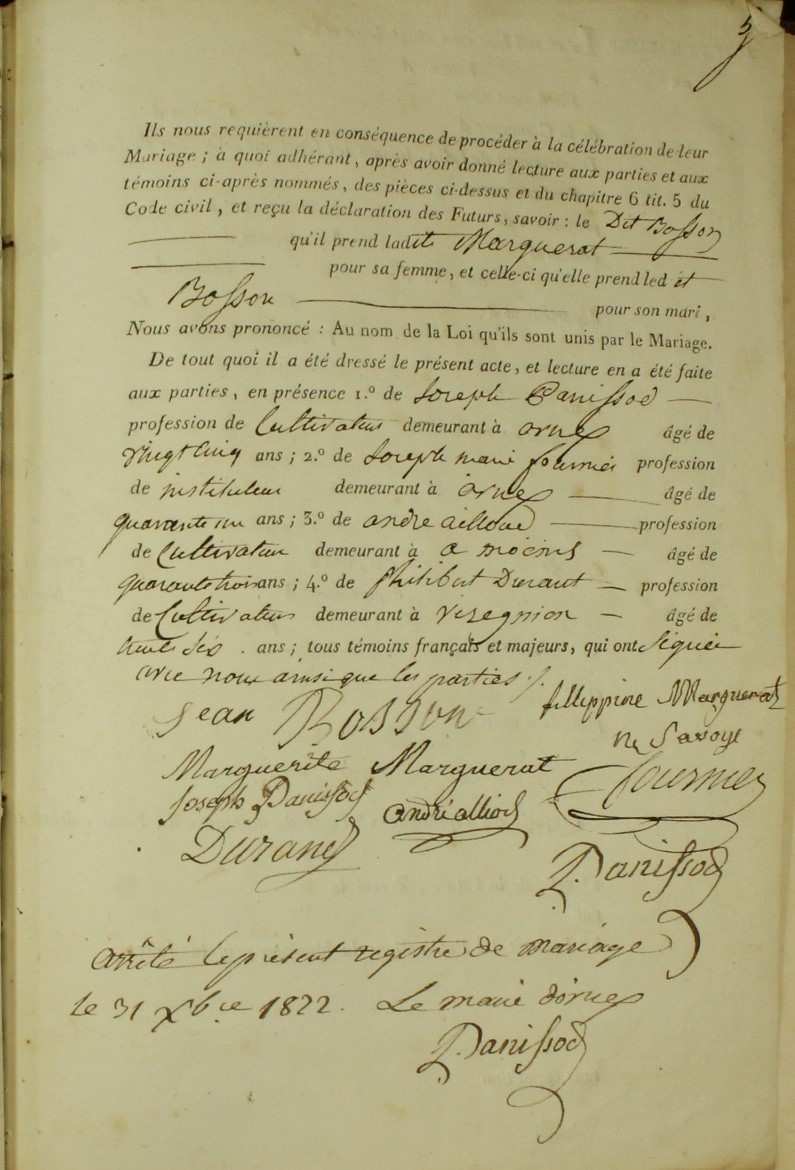 5
Ils nous requièrent en conséquence de procéder à la célébration de leur
Mariage ; à quoi adhérant, après avoir donné lecture aux parties et aux
témoins ci-après nommés, des pièces ci-dessus et du chapitre 6 tit. 5 du
Code civil, et reçu la déclaration des Futurs, savoir : le Dit Bosson
qu'il prend ladite Marguerat
pour sa femme, et celle-ci qu'elle prend led et
Bosson pour son mari,
Nous avons prononcé : Au nom de la Loi qu'ils sont unis par le Mariage.
De tout quoi il a été dressé le présent acte, et lecture en a été faite
aux parties, en présence 1.º de Joseph Panissod
profession de Cultivateur demeurant à ornex âgé de
vingt cinq ans ; 2.º de Joseph marie fournier profession
de instituteur demeurant à ornex âgé de
quarante un ans ; 3.º de andre alliod profession
de Cultivateur demeurant à a moëns âgé de
quarante trois ans ; 4.º de Philibert Durant profession
de Cultivateur demeurant à âgé de
six ans ; tous témoins français et majeurs, qui ont Signé
avec nous ainsi que les parties ./.
Jean Bosson fillippine Marguerat
né Savoye
Marguerite Marguerat Fournier
Joseph Panissod andré alliod
Durand
P. Panissod
Arrêté le présent registre de mariage
le 31 Xbre 1822. Le maire d'ornex
P. Panissod